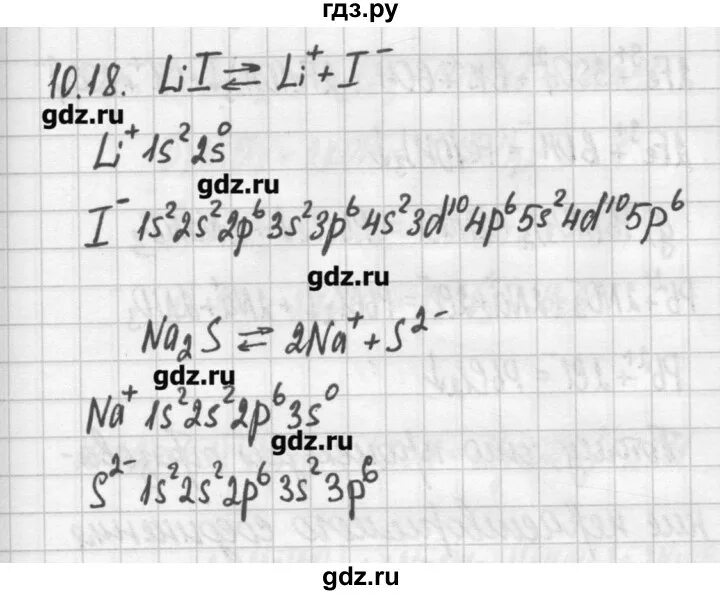 гдз.ру
10.18. LiI ⇄ Li⁺ + I⁻
gdz.ru
Li⁺ 1s²2s⁰
gdz.ru
I⁻ 1s²2s²2p⁶3s²3p⁶4s²3d¹⁰4p⁶5s²4d¹⁰5p⁶
gdz.ru
Na₂S ⇄ 2Na⁺ + S²⁻
gdz.ru
Na⁺ 1s²2s²2p⁶3s⁰
gdz.ru
S²⁻ 1s²2s²2p⁶3s²3p⁶
gdz.ru